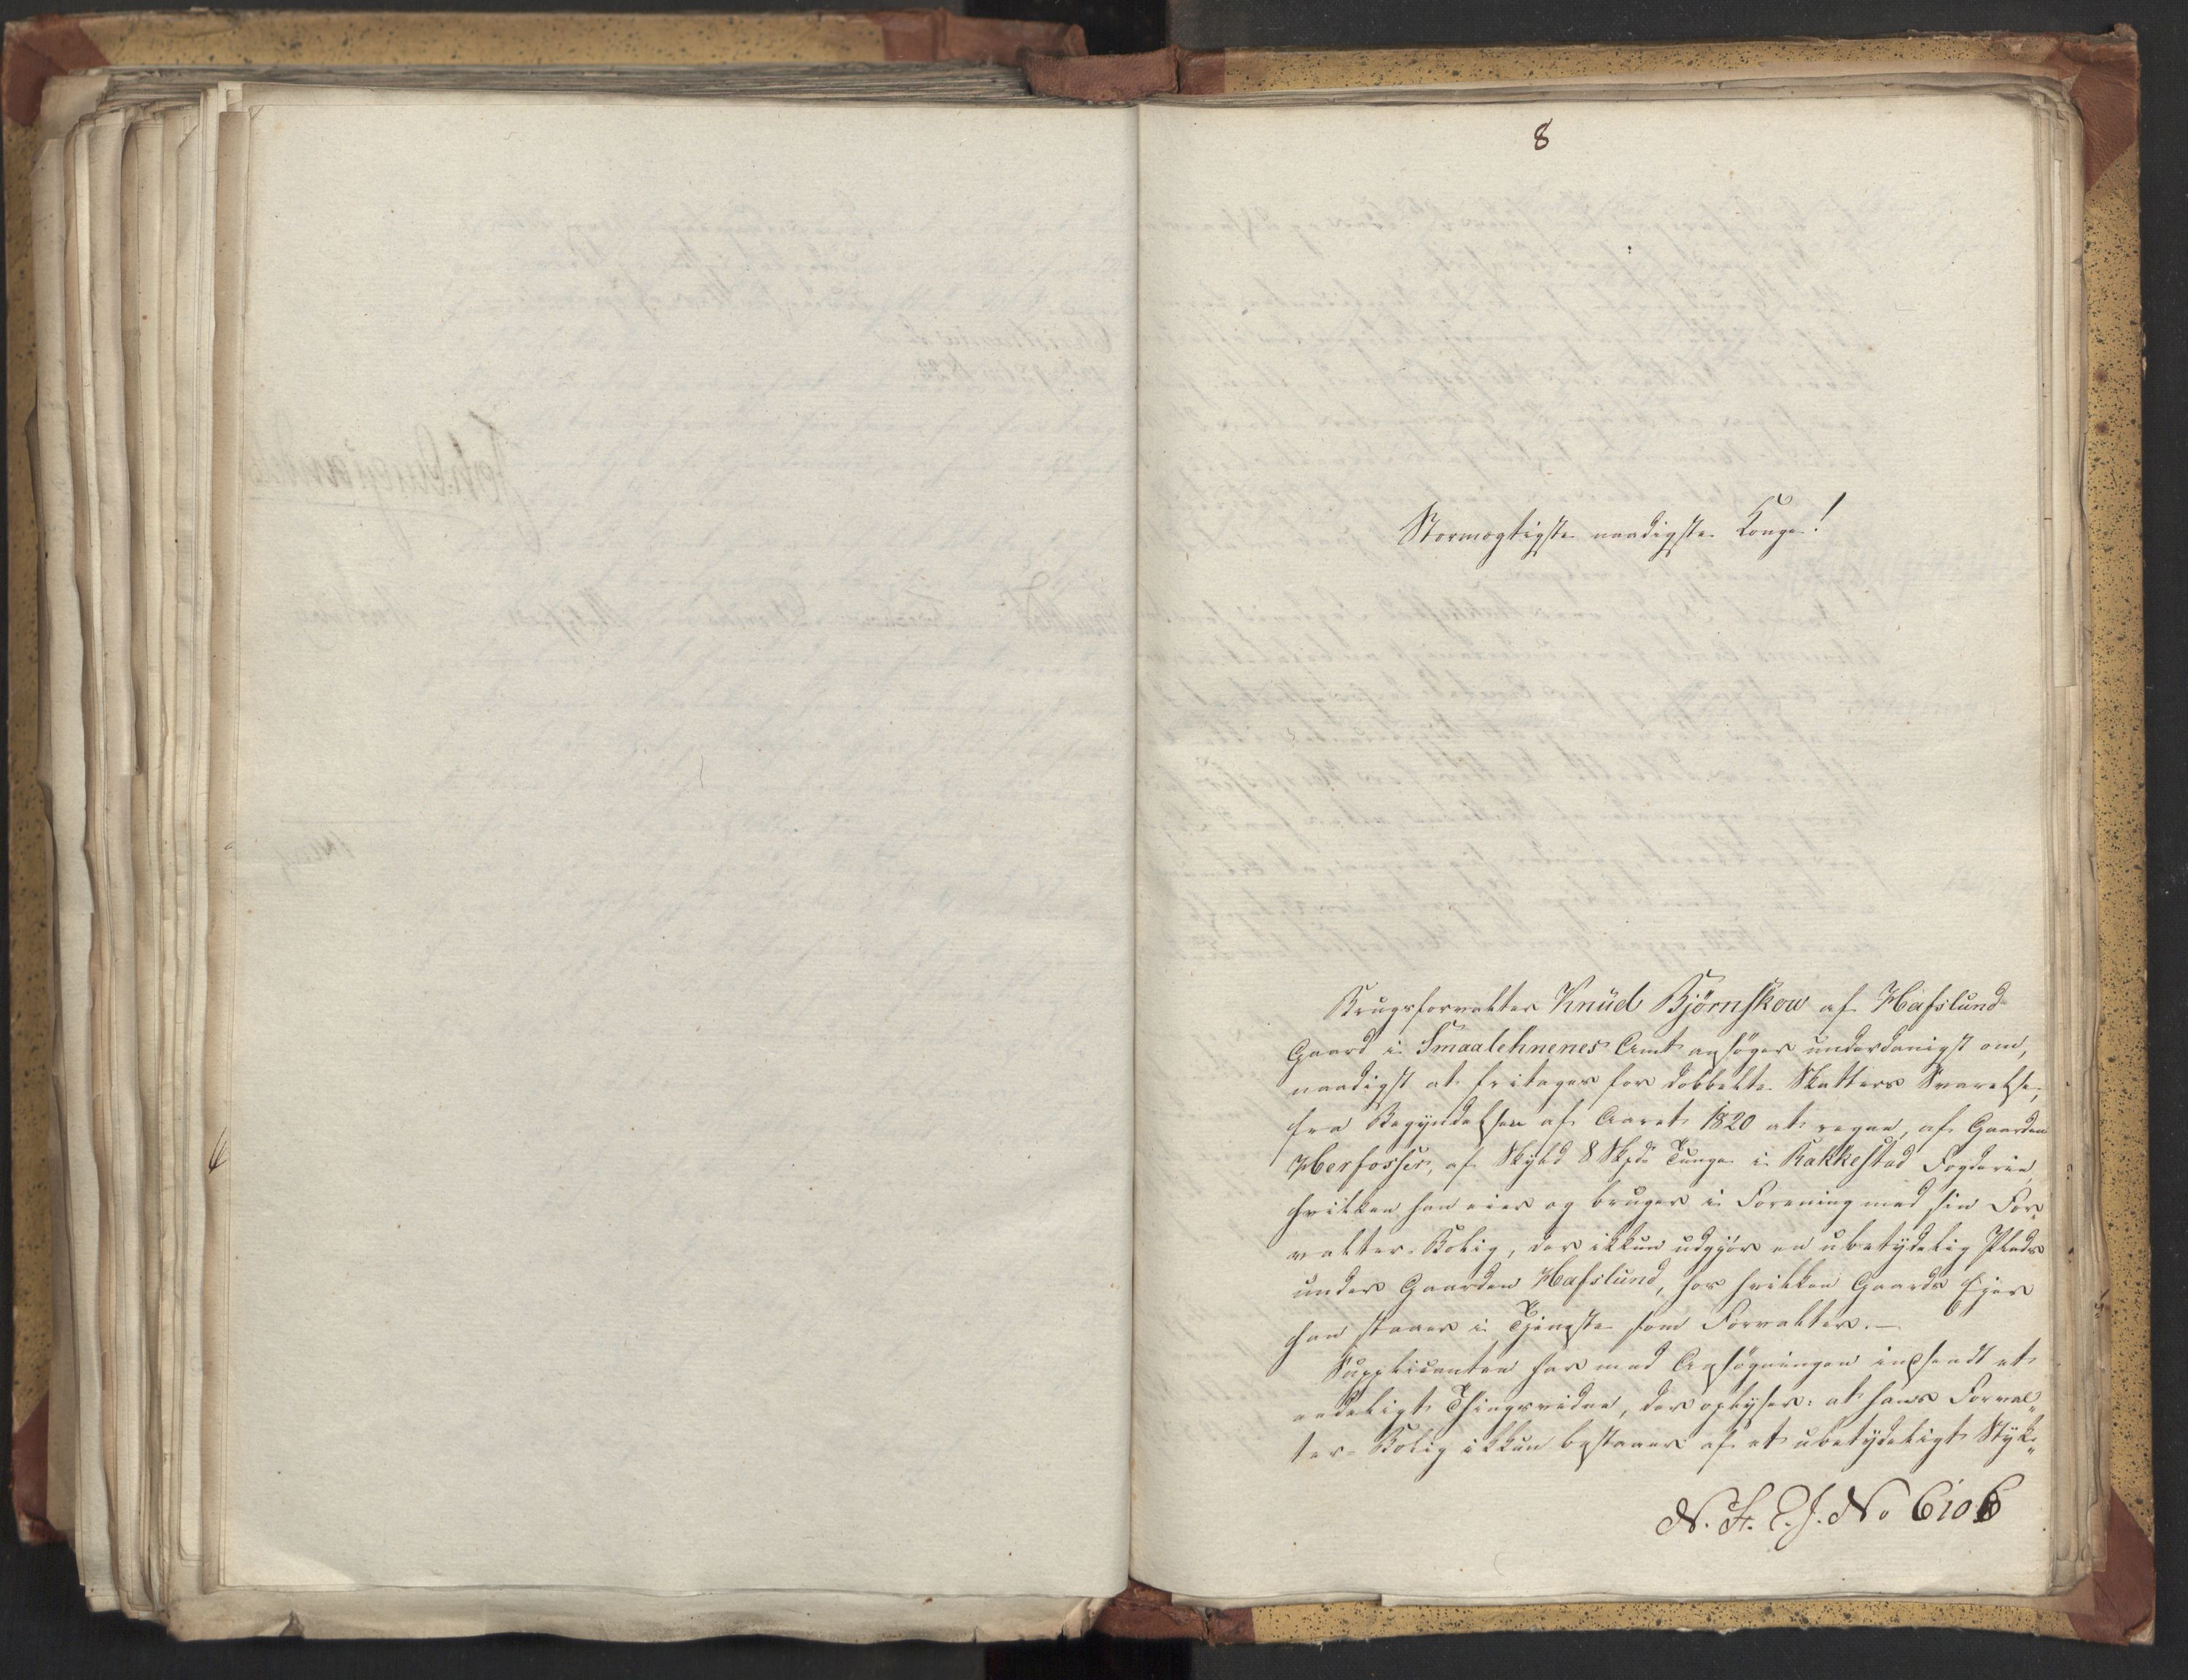 8
Stormægtigste naadigste Konge!
Brugsforvalter Knüd Björnskow af Hafslund
Gaard i Smaalehnenes Amt ansøger underdanigst om,
naadigst at fritages for dobbelte Skatters Svarelse,
fra Begyndelsen af Aaret 1820 at regne, af Gaarden
Herfosser, af Skyld 8 Skpd Tunge i Rakkestad Fogderie,
hvilken han eier og bruger i Forening med sin For,,
valter-Bolig, der ikkun udgjør en ubetydelig Plads
under Gaarden Hafslund, hos hvilken Gaards Ejer
han staaer i Tjeneste som Forvalter.—
Supplicanten har med Ansøgningen indsendt et
edeligt Thingsvidne, der oplyser: at hans Forval,,
ter-Bolig ikkun bestaaer af et ubetydeligt Styk,,
N. F. E. J. No 6106